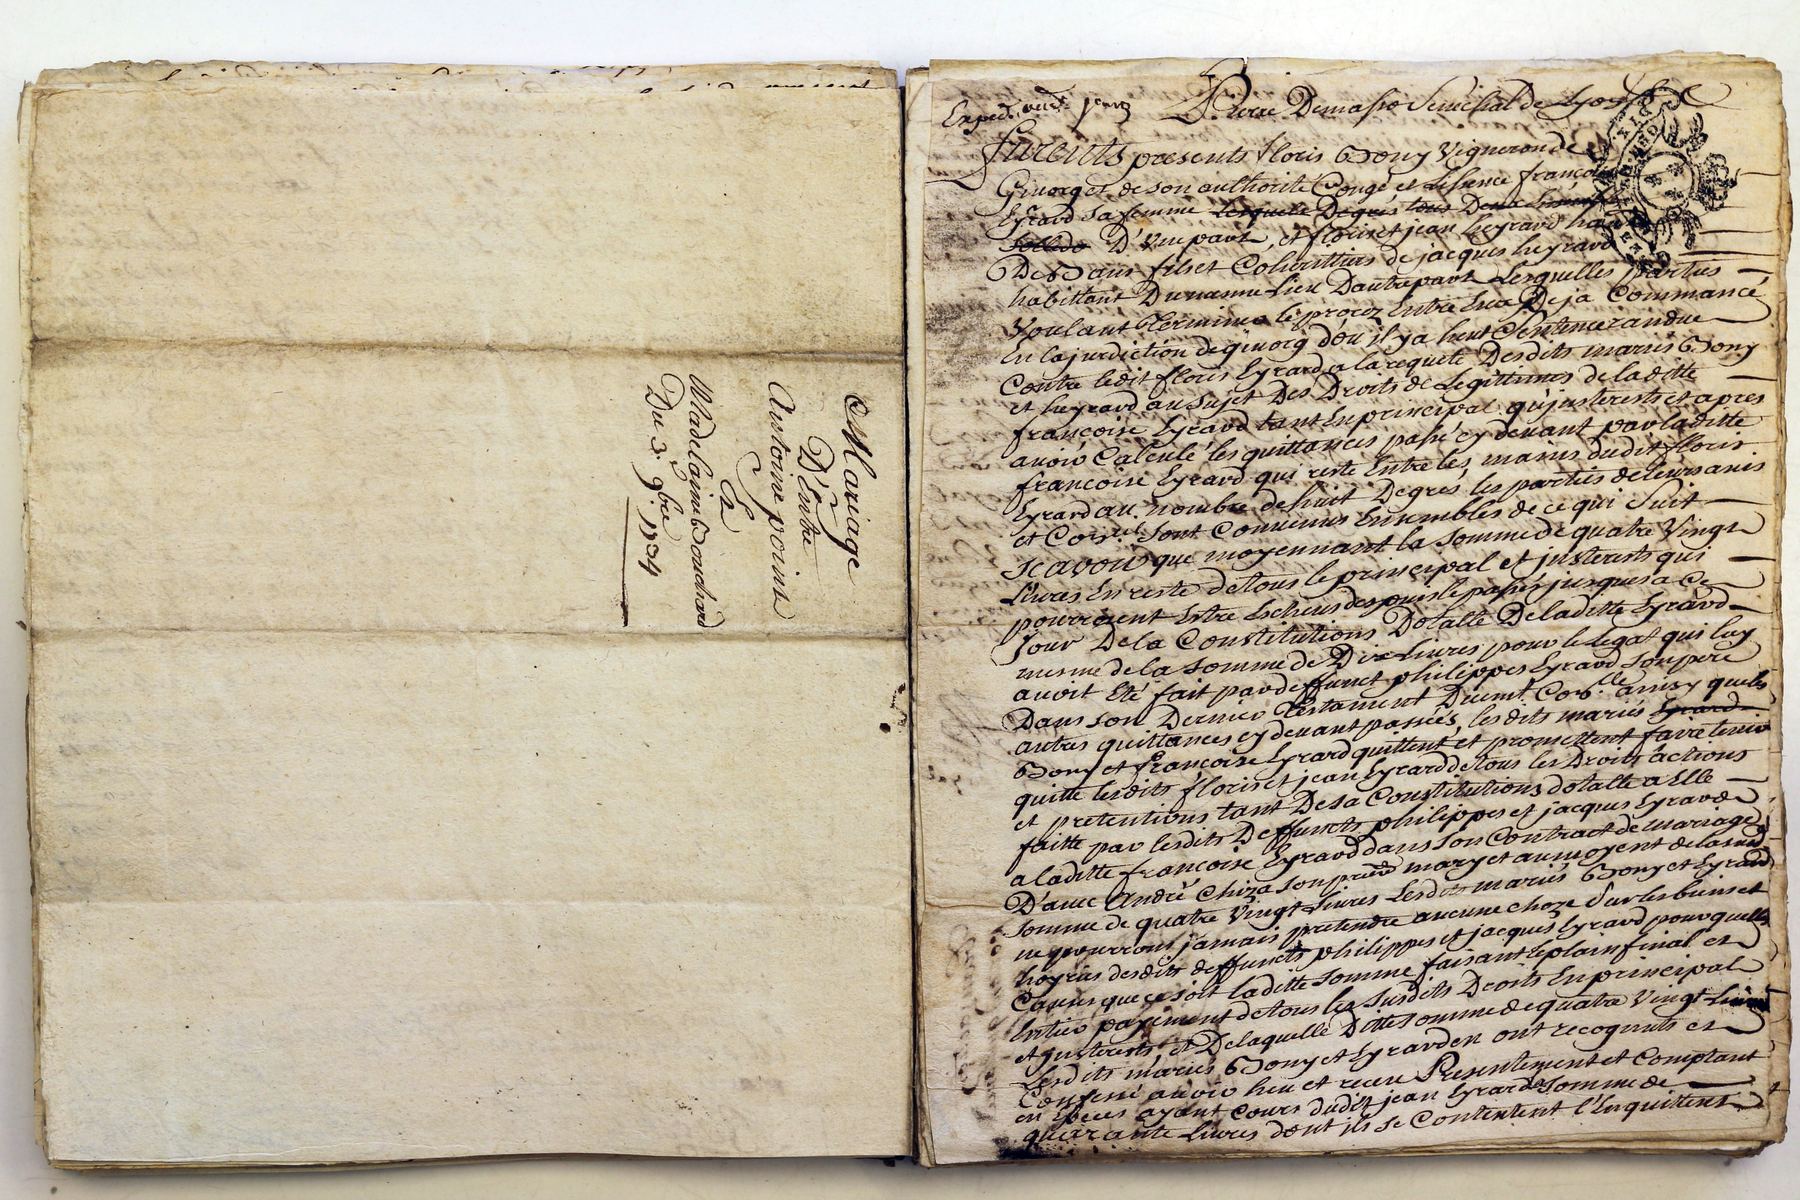 Mariage
D'Entre
Antoine point
Et
Madelaine Bouchard
Du 3e 9bre 1704
Pierre Demasso Senechal de Lyon
furents presents floris Bony Vigneron de
Givorg et de son authorité Congé et Lissence françoise
Eyrard sa femme Lesquels Degrés tous Deux
D'Une part, et floris et jean heyrard
De Bans fils et Coheritiers de jacques heyrard
habittant Du mesme Lieu Dautre part Lesquelles parties
Voulant Terminer le procez Entre Eux Deja Commancé
En la jurdiction de givorg dou il y a heut Sentence randue
Contre ledit floris Eyrard a la requete Desdits mariés Bony
et heyrard, au sujet Des Droits de Legittimes de laditte
françoise Eyrard tant En principal qu'jnterests et apres
avoir Calculé les quittances passé cy devant par laditte
francoise Eyrard qui reste Entre les mains dudit floris
Eyrard au nombre de huit Degrés les parties de leurs avis
et Conseil Sont Convenus Ensembles de ce qui Suit
Scavoir que moyennant la Somme de quatre Vingt
Livres En reste de tous le principal et jnterests qui
pourroient Estre Echeus despuis le passé jusques a Ce
Jour De la Constitutions Dotalle De laditte Eyrard
mesme de la Somme de Dix Livres pour le Legat qui luy
avoit Eté fait par deffunct philippes Eyrard Son pere
Dans son Dernier Testament ainsy que les
autres quittances cy devant passées, lesdits mariés Eyrard
Bony et françoise Eyrard quittent et promettent faire tenir
quitte lesdits floris et jean Eyrard de tous les Droits actions
et pretentions tant De sa Constitutions dotalle a Elle
faitte par lesdits Deffuncts philippes et jacques Eyrard
a laditte francoise Eyrard dans Son Contract de mariage
D'avec André Chiza son premier mary et au moyent de la
Somme de quatre Vingt Livres Lesdits mariés Bony et Eyrard
ne pourront jamais pretendre aucune choze Sur les biens et
hoyries desdits deffuncts philippes et jacques Eyrard pour quelle
Cause que ce soit laditte Somme faisant le plain final et
Entier payement de tous les Susdits Droits En principal
et jnterests, et De laquelle Ditte Somme de quatre Vingt Livres
Lesdits mariés Bony et Eyrard en ont recognuts et
Confessé avoir heu et receu Presentement et Comptant
en Especes ayant Cours dudit jean Eyrard Somme de
quarante Livres dont ils Se Contentent l'En quittent